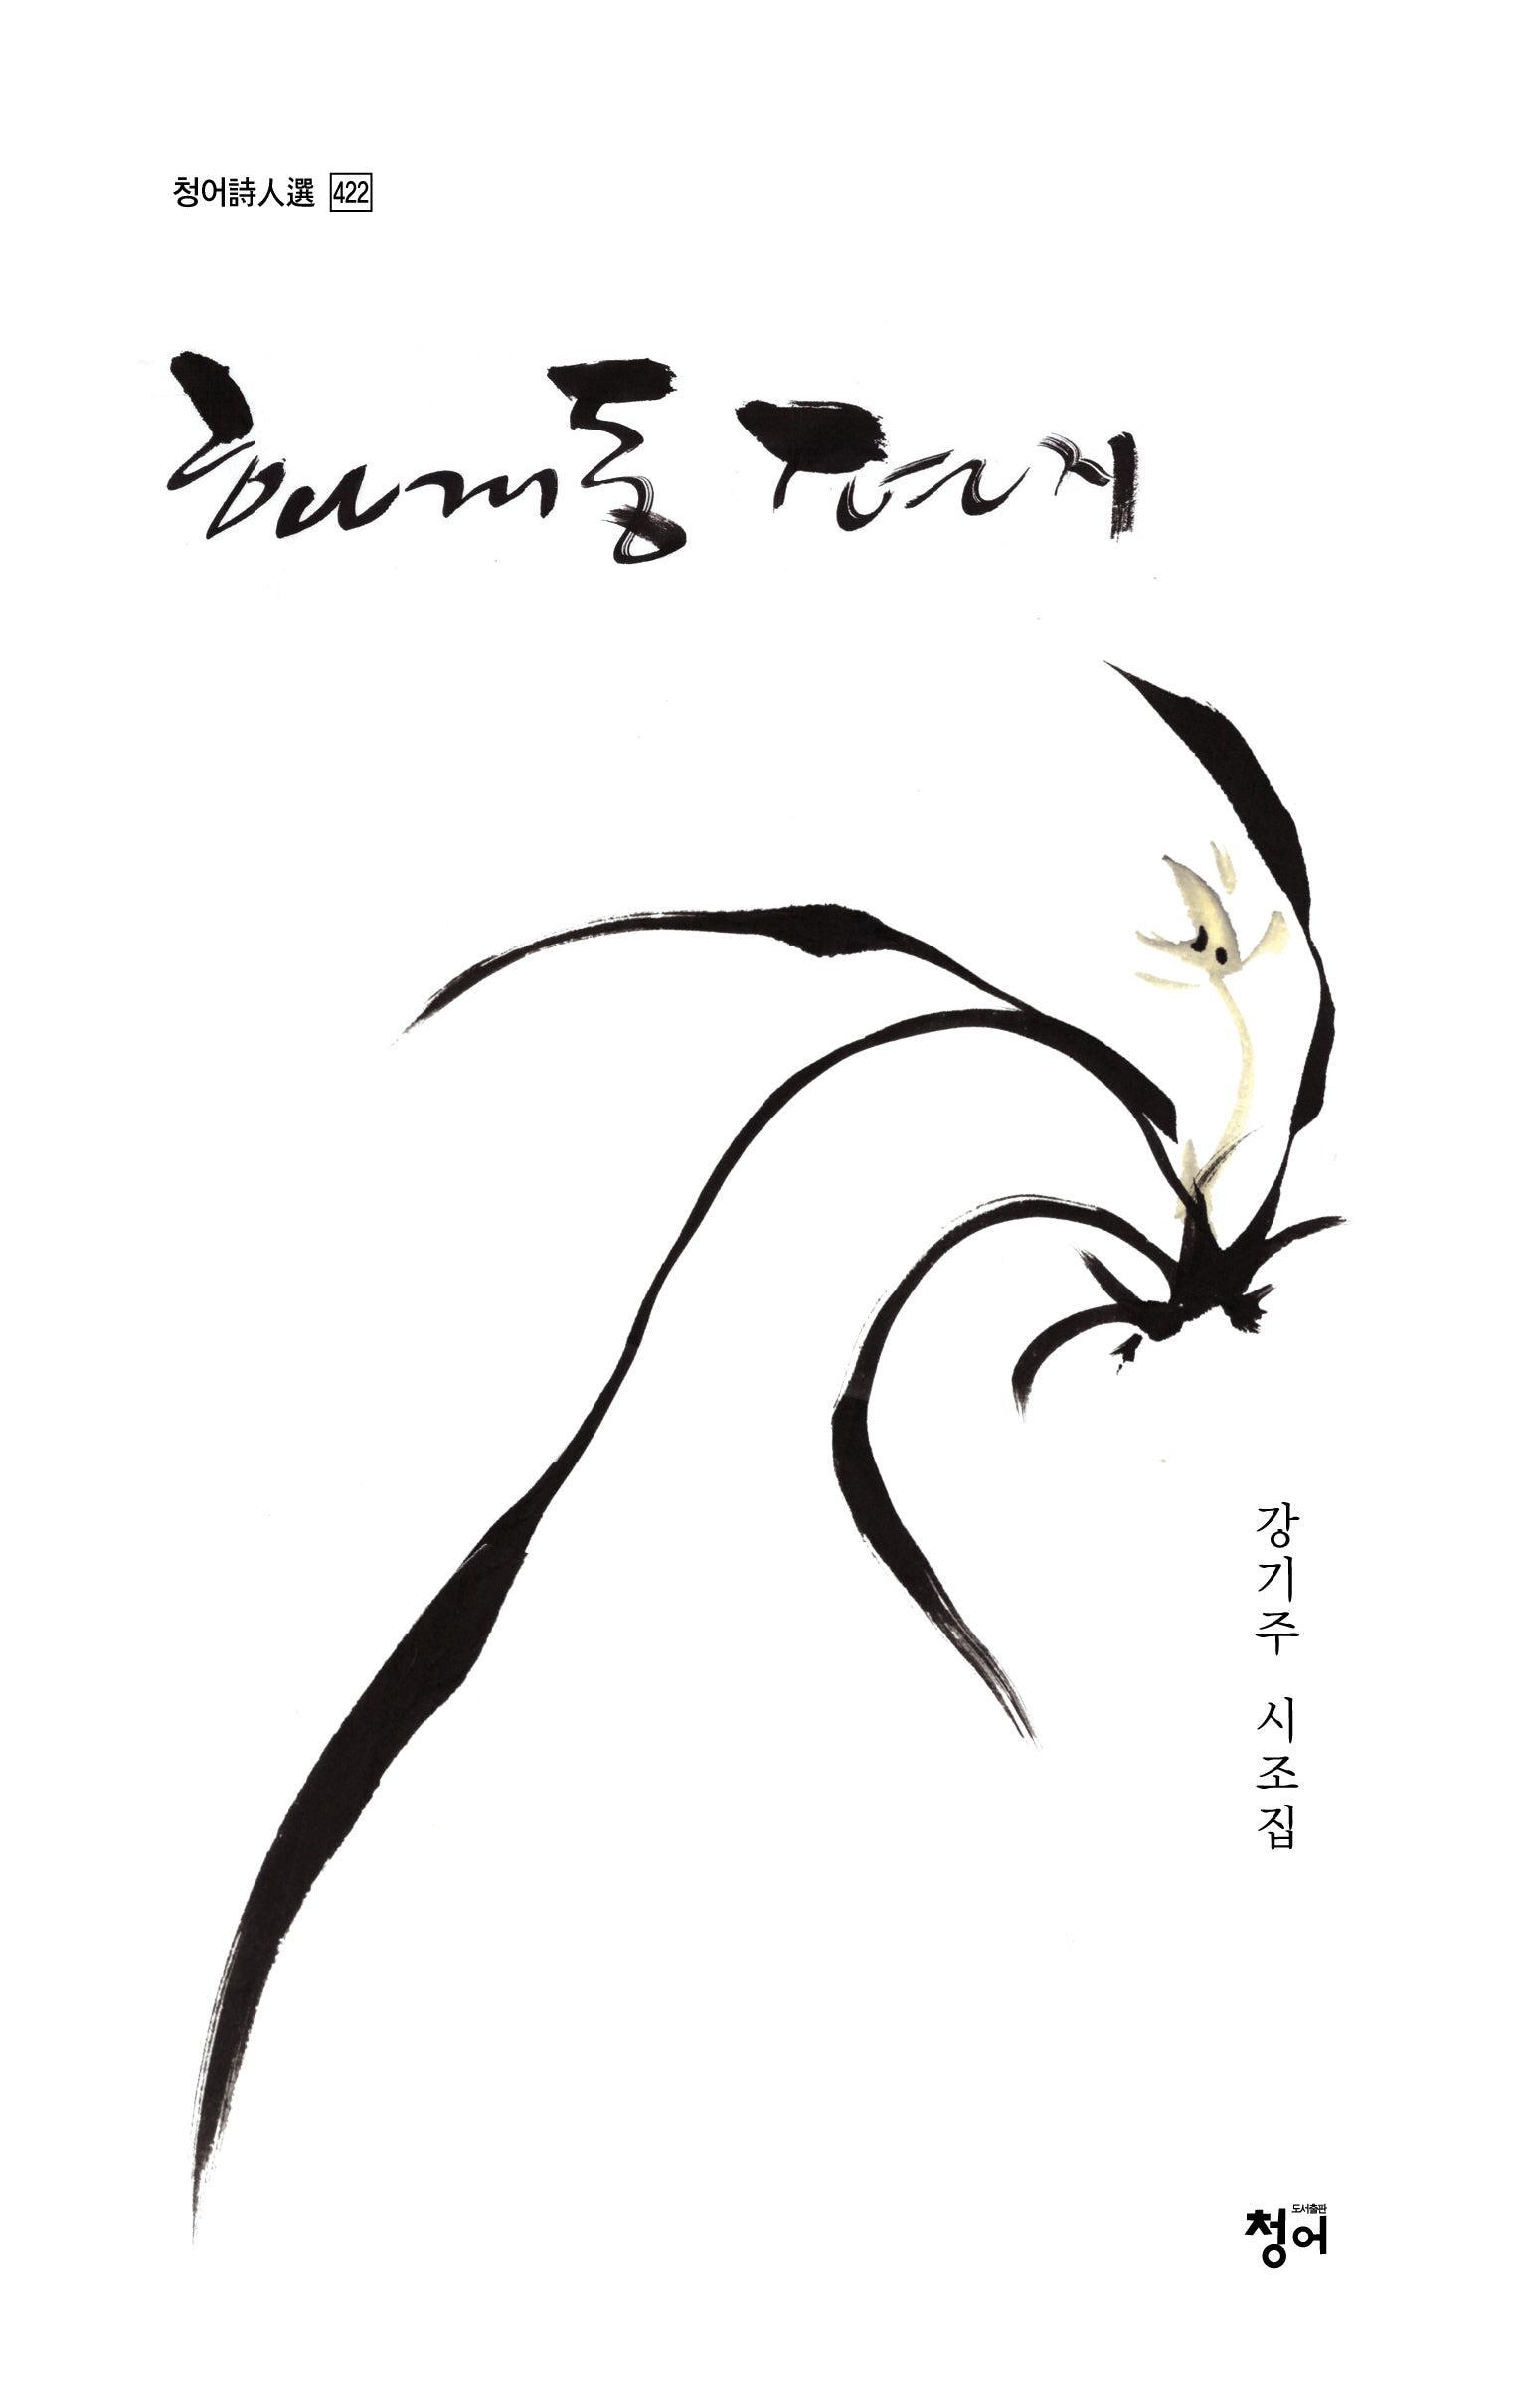 청어詩人選 422
강기주 시조집
도서출판
청어